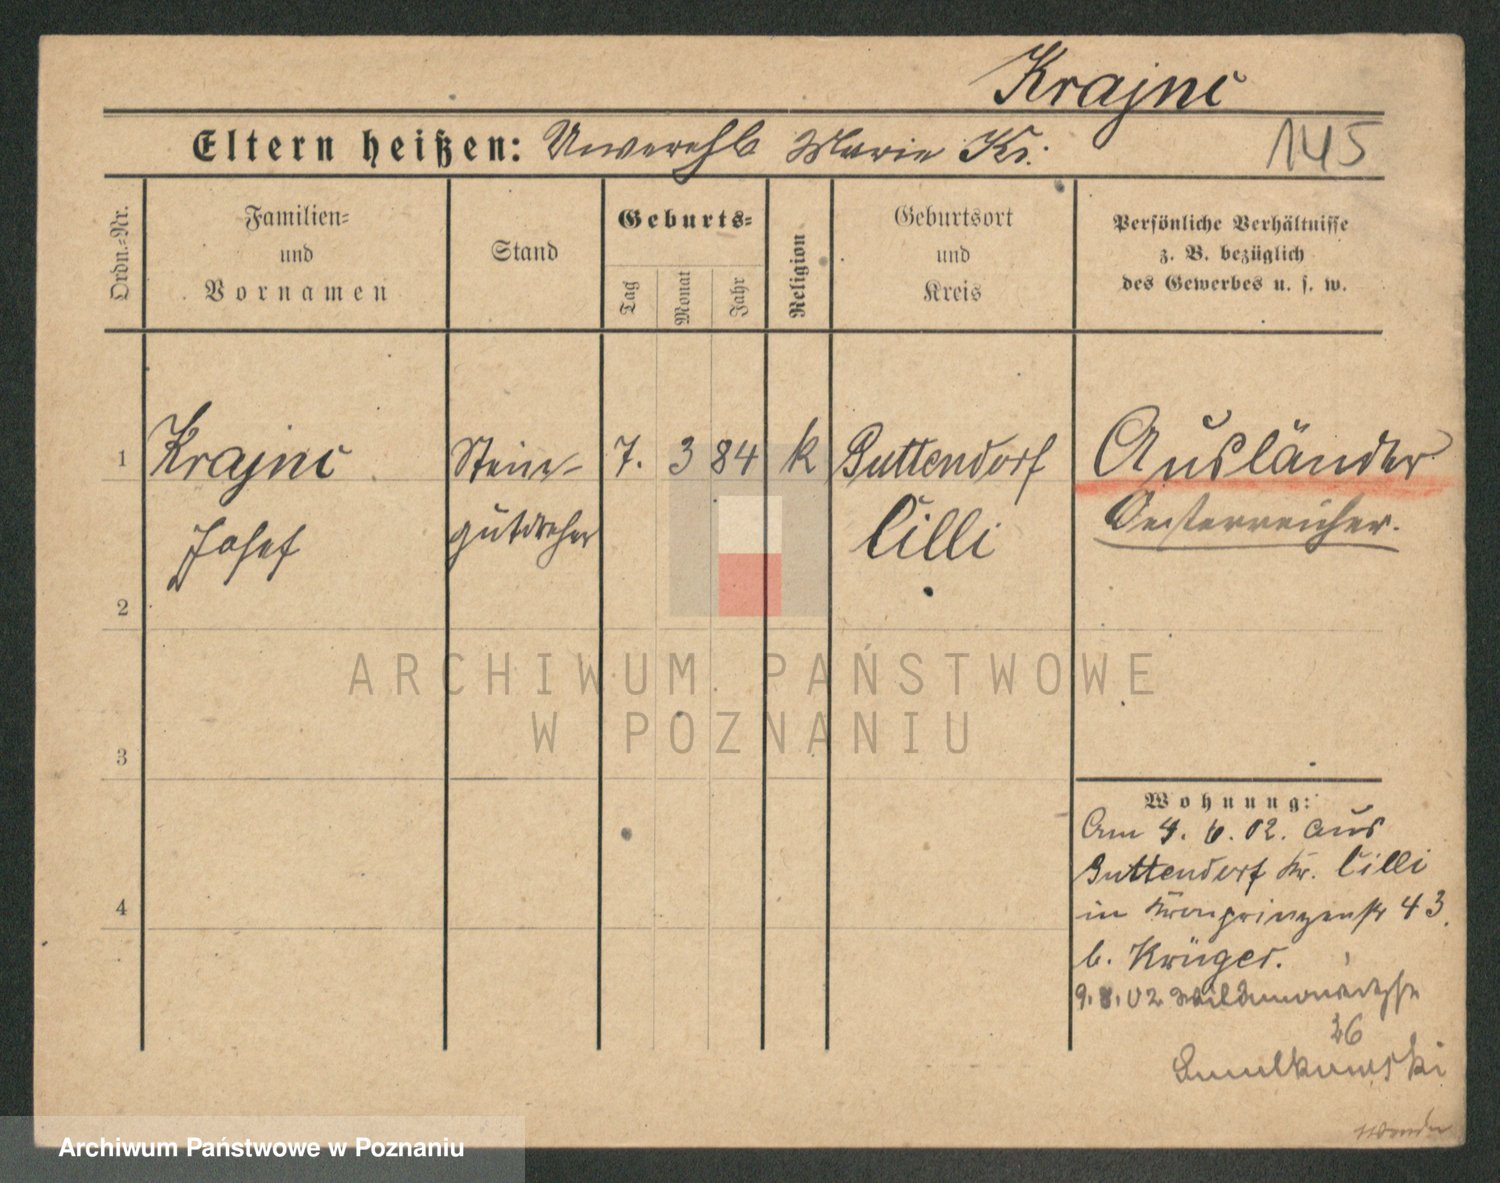 Krajnc
Eltern heißen: Unverehl. Marie Kr.
145
Ordn.-Nr.
Familien-
und
Vornamen
Stand
Geburts-
Tag
Monat
Jahr
Religion
Geburtsort
und
Kreis
Persönliche Verhältnisse
z. B. bezüglich
des Gewerbes u. s. w.
1 Krajnc Stein- 7. 3 84 k Guttendorf Ausländer
Josef gutdreher Cilli Oesterreicher.
2
ARCHIWUM PAŃSTWOWE
W POZNANIU
3
Wohnung:
Am 4. 6. 02. aus
Guttendorf Kr. Cilli
in Kronprinzenstr 43.
b. Krüger.
4
9. 8. 02
26
Archiwum Państwowe w Poznaniu